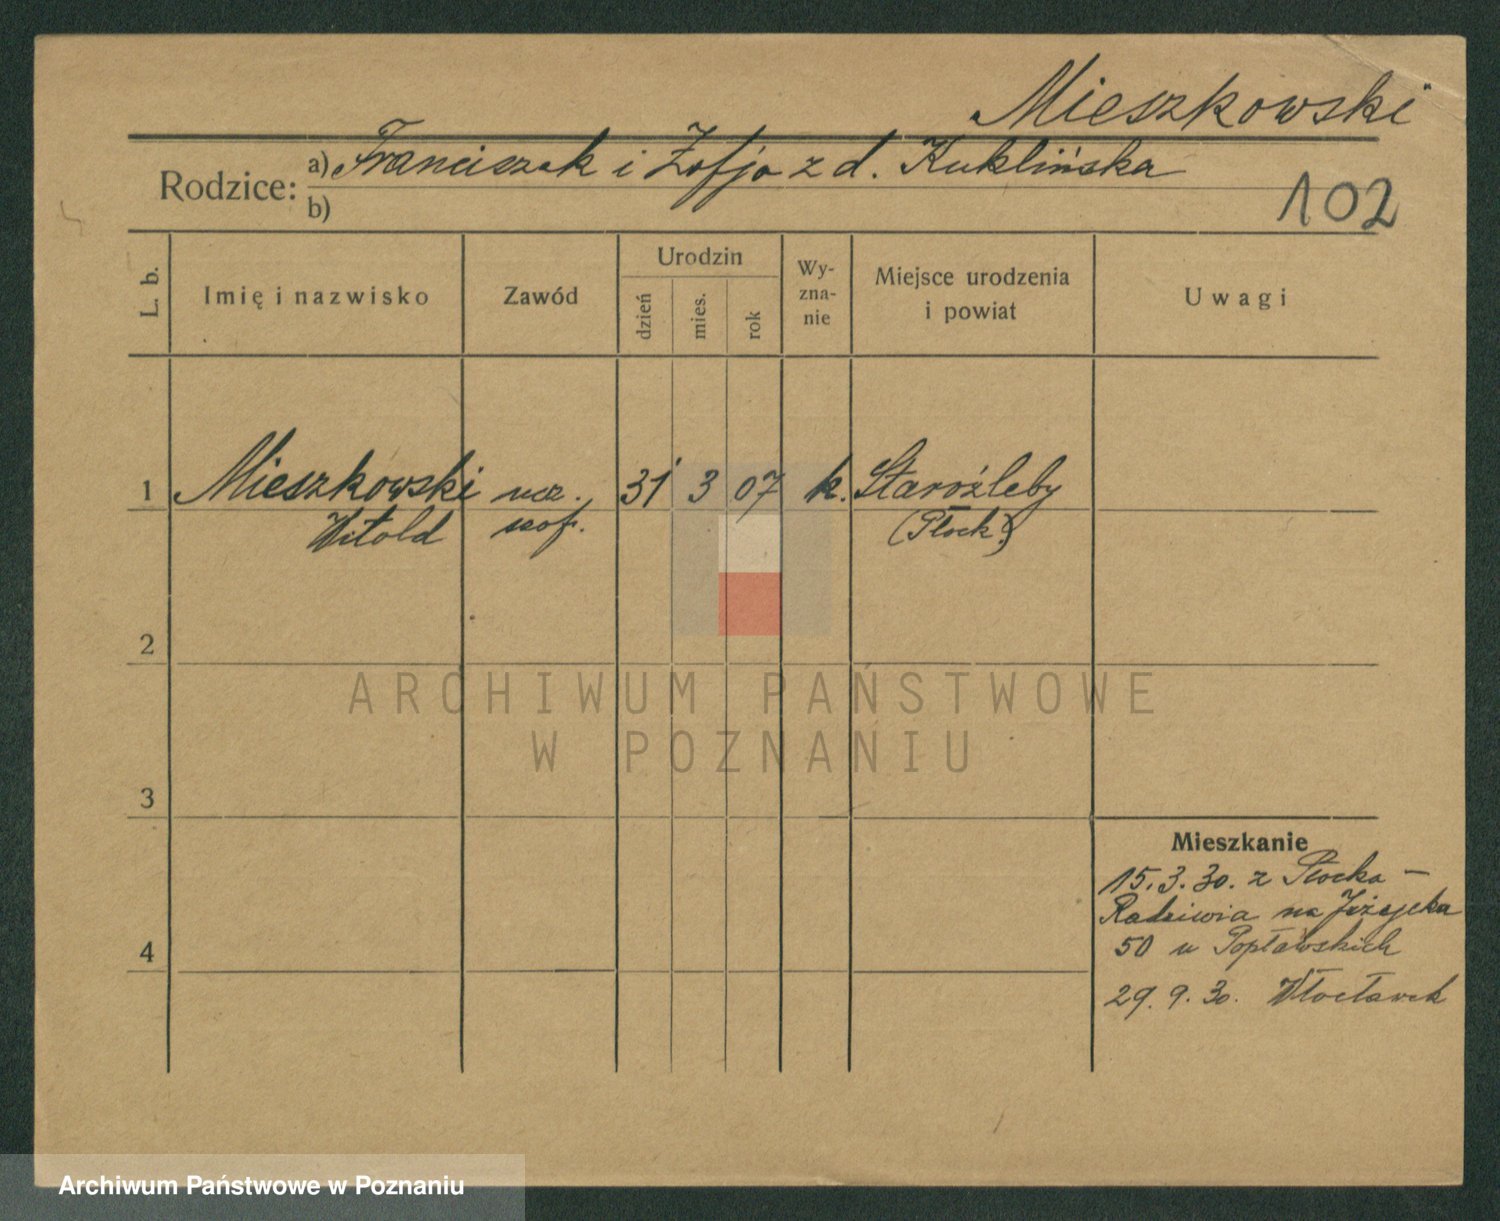 Mieszkowski
Rodzice:
a) Franciszek i Zofja z d. Kuklińska
b)
102
L. b.
Imię i nazwisko
Zawód
Urodzin
dzień
mies.
rok
Wy-
zna-
nie
Miejsce urodzenia
i powiat
Uwagi
1 Mieszkowski ucz. 31 3 07 k. Staroźleby
Witold szof. (Płock)
2
3
4
ARCHIWUM PAŃSTWOWE
W POZNANIU
Mieszkanie
15.3.30. z Płocka –
Radziwia na
50 u Popławskich
29.9.30. Włocławek
Archiwum Państwowe w Poznaniu